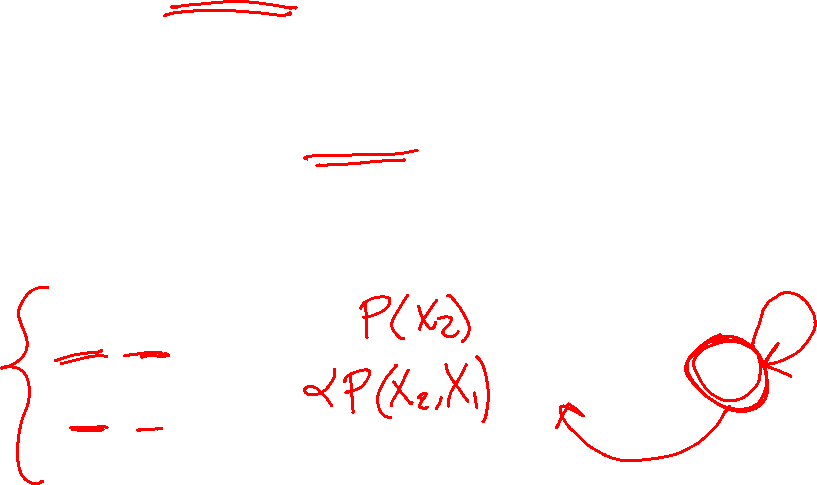 P(X₂)
∝P(X₂,X₁)